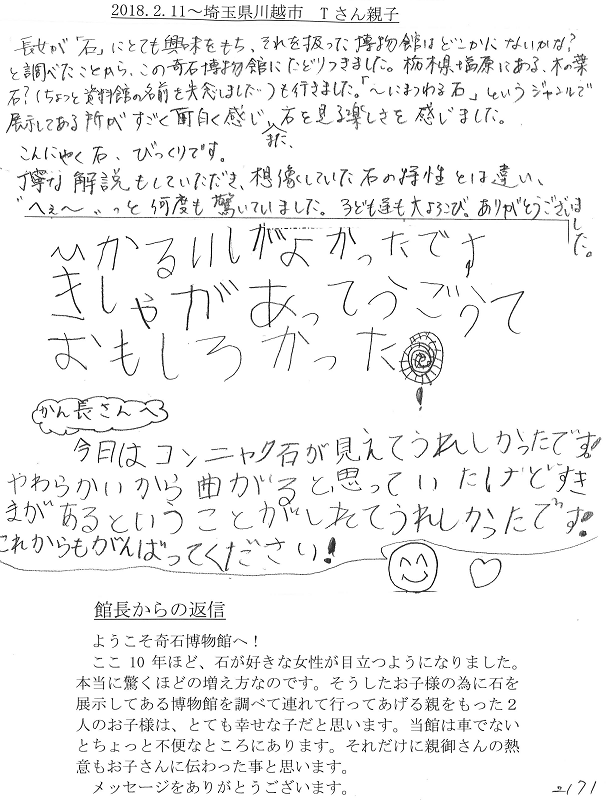 2018.2.11～埼玉県川越市　Tさん親子
長女が「石」にとても興味をもち、それを扱った博物館はどこかにないかな？
と調べたことから、この奇石博物館にたどりつきました。栃木県塩原にある、木の葉
石？（ちょっと資料館の名前を失念しましたｰ）も行きました。「〜にまつわる石」というジャンルで
展示してある所がすごく面白く感じ、また、石を見る楽しさを感じました。
こんにゃく石、びっくりです。
丁寧な解説もしていただき、想像していた石の特性とは違い、
“へぇ〜”っと何度も驚いていました。子ども達も大よろこび。ありがとうございました。
ひかるいしがよかったです
きしゃがあってうごうて
おもしろかった
かん長さんへ
今日はコンニャク石が見えてうれしかったです!
やわらかいから曲がると思っていたけどすき
まがあるということがしれてうれしかったです!
これからもがんばってください!
館長からの返信
ようこそ奇石博物館へ！
ここ 10 年ほど、石が好きな女性が目立つようになりました。
本当に驚くほどの増え方なのです。そうしたお子様の為に石を
展示してある博物館を調べて連れて行ってあげる親をもった２
人のお子様は、とても幸せな子だと思います。当館は車でない
とちょっと不便なところにあります。それだけに親御さんの熱
意もお子さんに伝わった事と思います。
メッセージをありがとうございます。